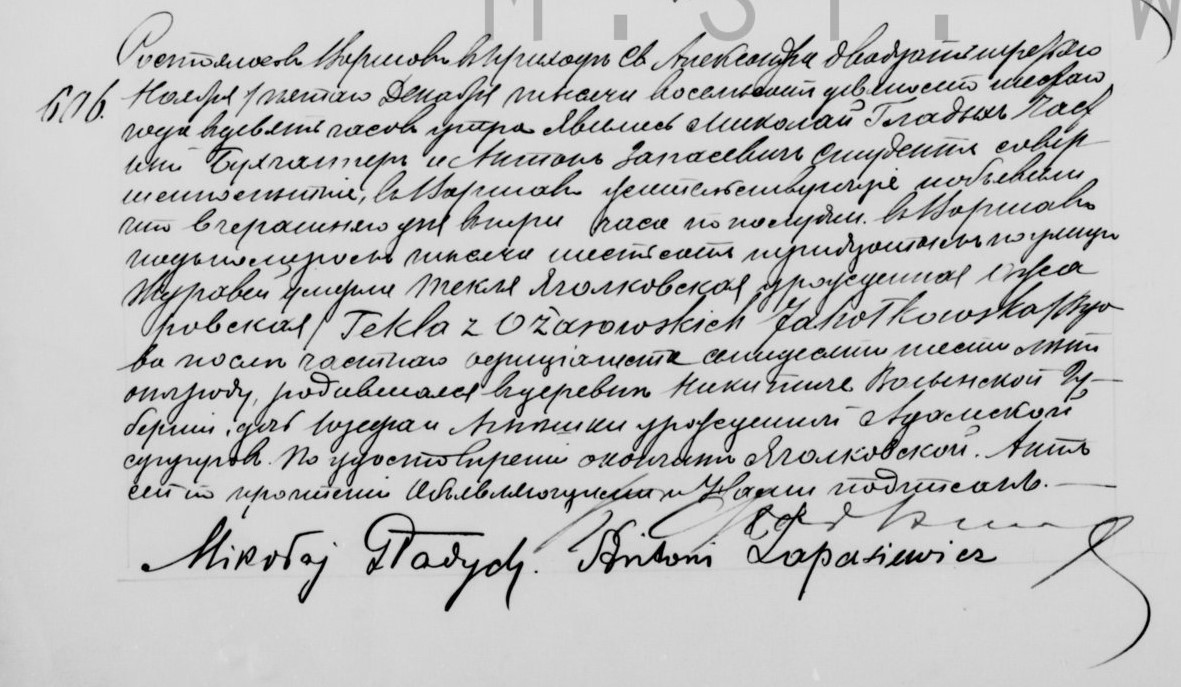 M.ST. W
Состоялось Варшаве въ приходѣ Св. Александра двадцать третьяго
676. Ноября / пятаго Декабря тысяча восемьсотъ девяносто шестаго
года въ девять часовъ утра. Явились Миколай Гладыхъ Част
ный Бухгалтеръ и Антонъ Запасевичъ Студентъ совер
шеннолѣтніе, въ Варшавѣ жительствующіе и объявили
что вчерашняго дня въ три часа по полудни въ Варшавѣ
подъ номеромъ тысяча шестьсотъ тридцатымъ по улицѣ
Журавей умерла Текля Яголковская урожденная Ожа
ровская / Tekla z Ożarowskich Jahołkowska / вдо
ва послѣ частнаго оффиціалиста семидесяти шести лѣтъ
отъ роду, родившаяся въ деревнѣ Никитиче Волынской Гу-
берніи, дочь Юзефа и урожденной Адамской
супруговъ. По удостовѣреніи о кончинѣ Яголковской. Актъ
сей по прочтеніи объявляющими и Нами подписанъ.
Mikołaj Gładych. Antoni Zapasiewicz